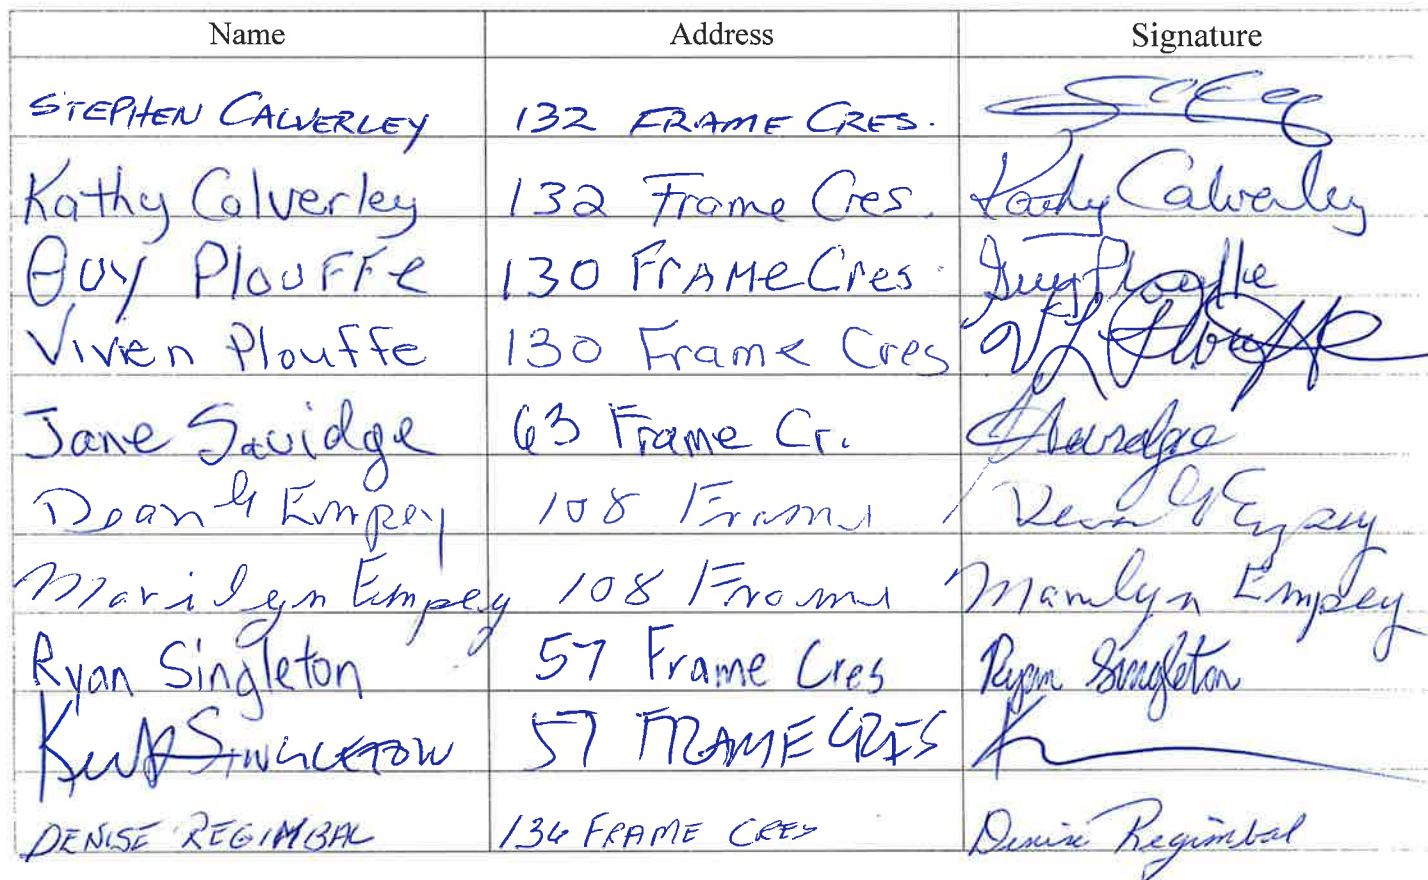 Name Address Signature
STEPHEN CALVERLEY 132 FRAME CRES.
Kathy Calverley 132 Frame Cres. Kathy Calverley
GUY PlouFFe 130 FRAMe Cres Guy Plouffe
Vivien Plouffe 130 Frame Cres VL Plouffe
Jane Savidge 63 Frame Cr. JSavidge
Dean G Empey 108 Frame Dean G Empey
Marilyn Empey 108 Frame Marilyn Empey
Ryan Singleton 57 Frame Cres Ryan Singleton
SINGLETON 57 FRAME CRES
DENISE REGIMBAL 136 FRAME CRES Denise Regimbal